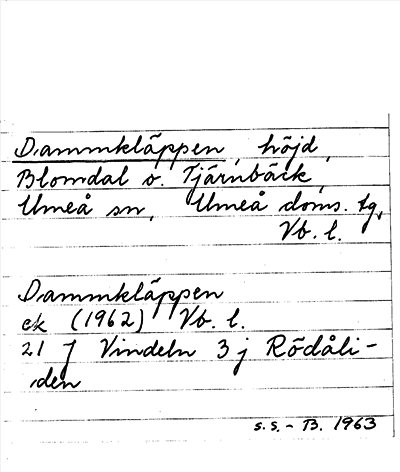 Dammkläppen, höjd,
Blomdal o. Tjärnbäck,
Umeå sn, Umeå doms. tg,
Vb. l.
Dammkläppen
ek (1962) Vb. l.
21 J Vindeln 3 j Rödåli-
den
s.s. - B. 1963